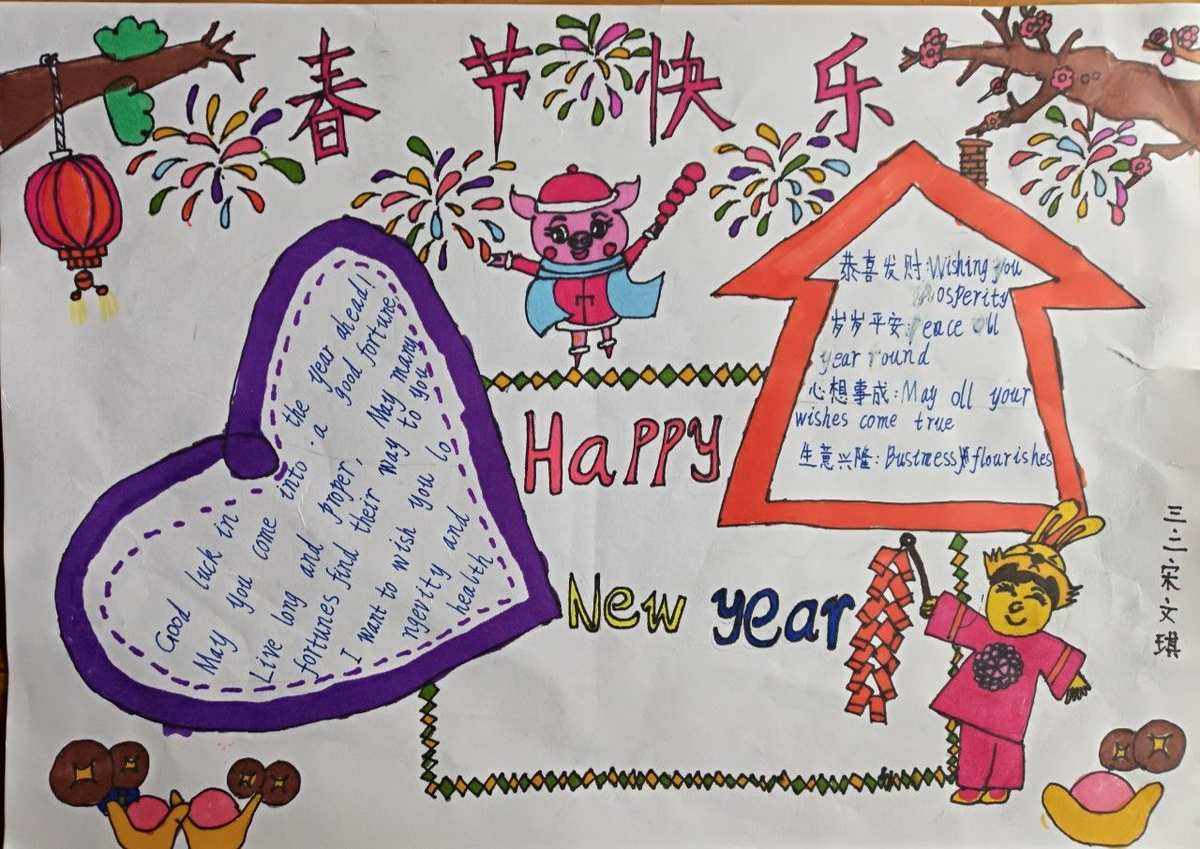 春节快乐
Good luck in the year ahead!
May you come into a good fortune,
Live long and proper, May many
fortunes find their way to you
I want to wish you lo
ngevity and
health
恭喜发财:Wishing you
prosperity
岁岁平安:Peace all
year round
心想事成:May all your
wishes come true
生意兴隆:Business flourishes
Happy
New year
三·二·宋·文琪